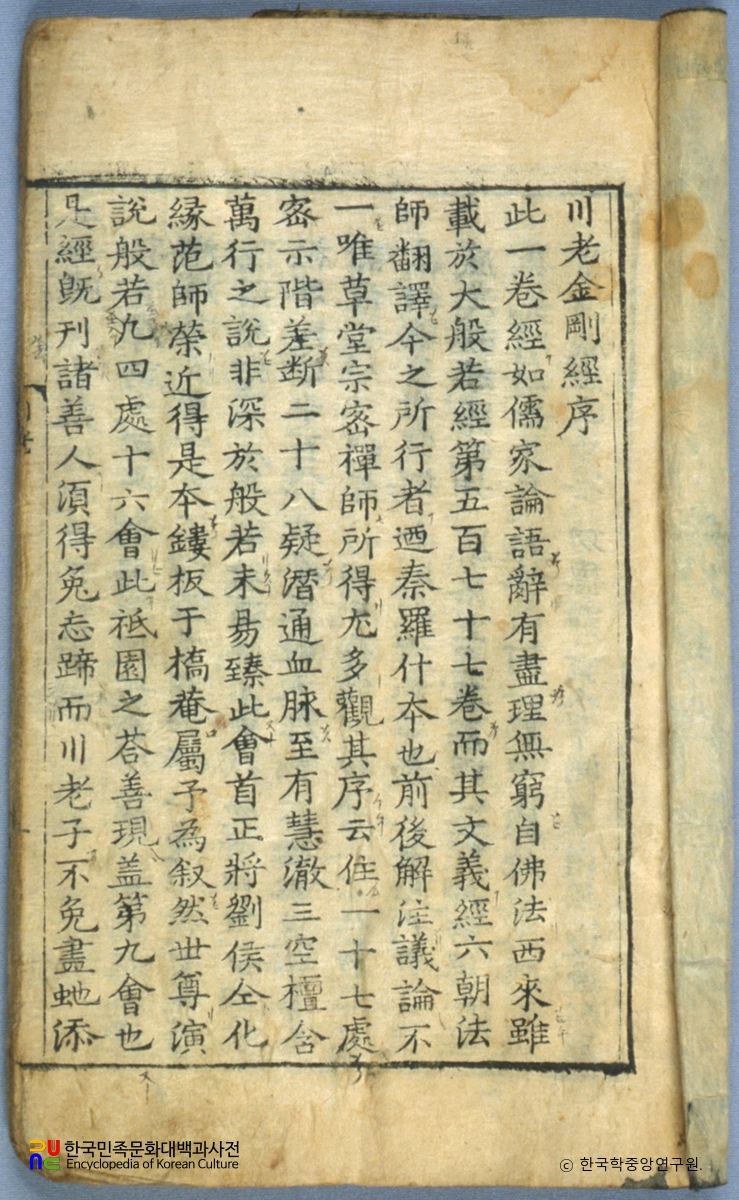 川老金剛經序
此一卷經如儒家論語辭有盡理無窮自佛法西來雖
載於大般若經第五百七十七卷而其文義經六朝法
師翻譯今之所行者迺秦羅什夲也前後解注議論不
一唯草堂宗密禪師所得尤多觀其序云住一十七處
密示階差断二十八疑潛通血脉至有慧澈三空檀含
萬行之說非深於般若未易臻此會首正將劉侯仝化
緣范師榮近得是夲鏤板于橋菴屬予為叙然世尊演
說般若九四處十六會此祗園之荅善現盖第九會也
是經旣刋諸善人須得兔忘蹄而川老子不免畫虵添
한국민족문화대백과사전
Encyclopedia of Korean Culture
© 한국학중앙연구원.